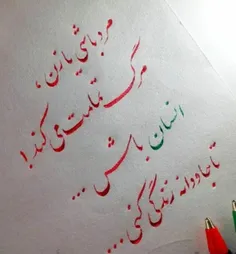 مرد باشی یا زن،
مرگ تمامت می کند!
انسان باش ...
تا جاودانه زندگی کنی ...